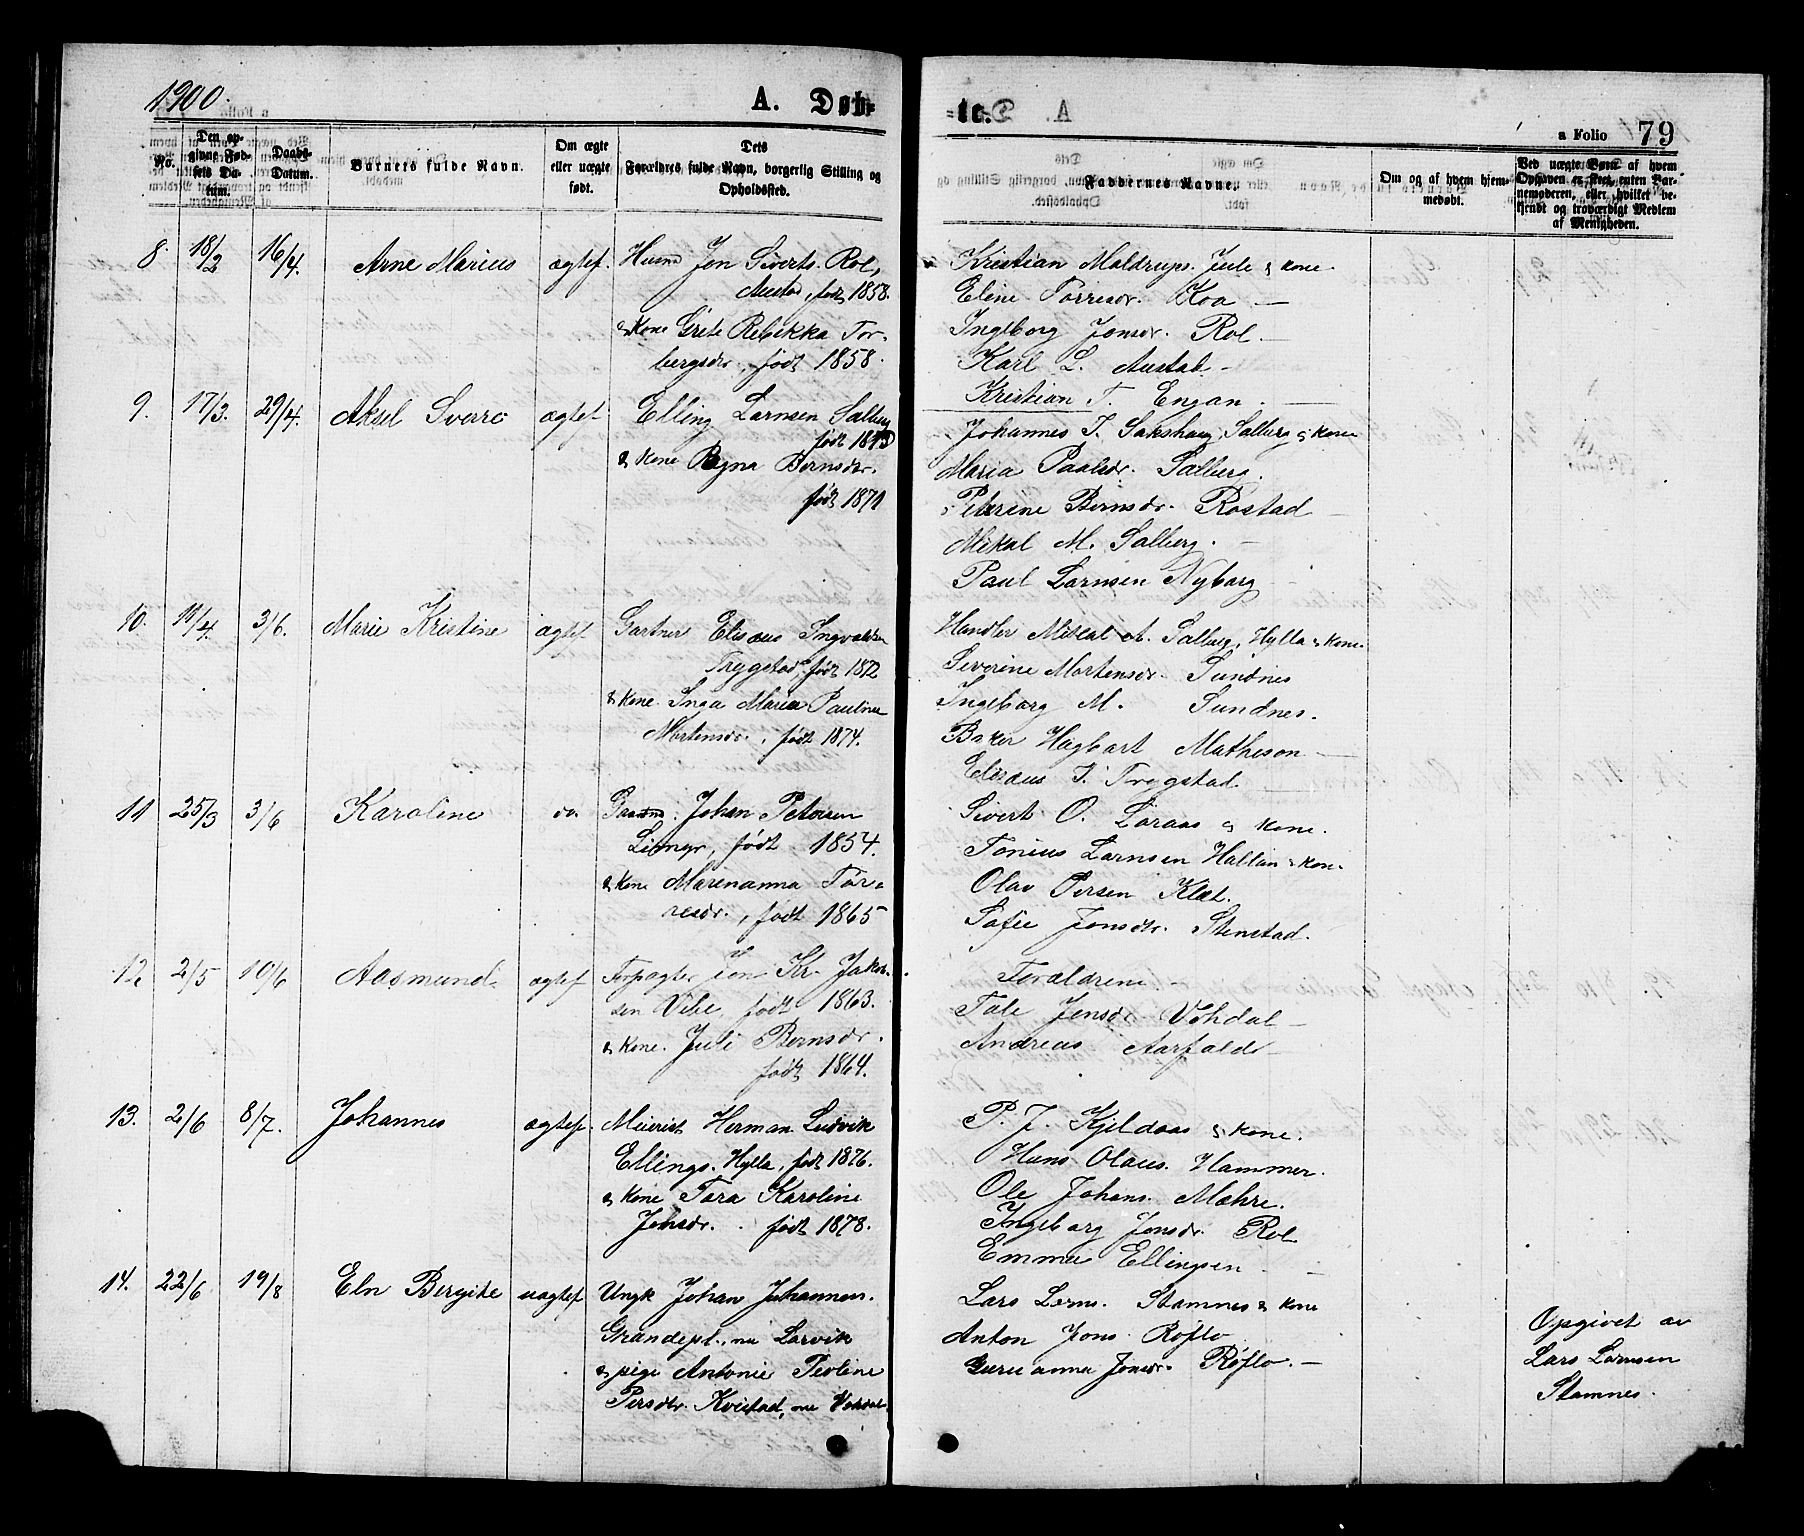 1900.
A. Døb-
te.
a Folio 79
No.
Den op-
givne Fød-
sels Da-
tum.
Daabs-
Datum.
Barnets fulde Navn.
Om ægte
eller uægte
født.
Dets
Forældres fulde Navn, borgerlig Stilling og
Opholdssted.
Faddernes Navne.
Om og af hvem hjem-
medøbt.
Ved uægte Børn af hvem
Opgaven er skeet, enten Bar-
nemoderen, eller hvilket be-
kjendt og troværdigt Medlem
af Menigheden.
8. 18/2 16/4. Arne Marius ægtef. Husm Jon Siverts. Rol,
Austad, født 1858.
& Kone Grete Rebikka Tor-
bergsdr., født 1858.
Kristian Maldrups. Jule & kone.
Eline Torresdr. Koa —
Ingeborg Jonsdr. Rol. —
Karl L. Austad —
Kristian T. Engan. —
9. 17/3. 29/4. Aksel Svare ægtef. Elling Larnsen Salberg
født 1875
& Kone Ragna Bernsdtr.
født 1871
Johannes J. Sakshaug, Salberg & kone
Maria Paalsdr. Salberg.
Petrine Bernsdr. Rostad —
Mikal M. Salberg. —
Paul Larnsen Nyborg —
10. 11/4. 3/6. Marie Kristine ægtef. Gartner Elisæus Ingvaldsen
Trygstad, født 1872
& Kone. Inga Maria Pauline
Mortensdr., født 1874.
Handler Mikal A. Salberg, Hylla & kone.
Severine Mortensdr. Sundnes
Ingeborg M. Sundnes.
Baker Hagbart Matheson —
Elisæus I. Trygstad —
11 25/3 3/6 Karoline do. Gaardm. Johan Petersen
Liengr, født 1854.
& Kone Marenanna Tor-
resdr., født 1865
Sivert O. Laraas & kone.
Tonius Larnsen Hallan & kone.
Olav Persen Klæt.
Sofie Jonsdtr. Stenstad.
12 2/5 10/6 Aasmund ægtef. Forpagter Jon Kr. Jakob-
sen Vibe, født 1863.
& Kone. Juli Bernsdr.
født 1864.
Forældrene. —
Tale Jensdr. Vohdal —
Andreas Aarfald —
13. 2/6 8/7. Johannes ægtef. Meierist Herman Ludvik
Ellings. Hylla, født 1876.
& Kone Tora Karoline
Johsdr. født 1878.
P. J. Kjeldaas & kone.
Hans Olaus. Hammer.
Ole Johans. Mæhre.
Ingeborg Jonsdr. Rol
Emma Ellingsen —
14. 22/6 19/8 Eln Bergite uægtef. Ungk Johan Johannesen.
Grandepl., nu Larvik
& pige Antonie Petline
Persdtr. Kvistad, nu Vohdal
Lars Lorns. Stamnes & kone
Anton Jons. Røflo
Guruanna Jonsdr. Røflo. —
Opgivet av
Lars Larnsen
Stamnes.